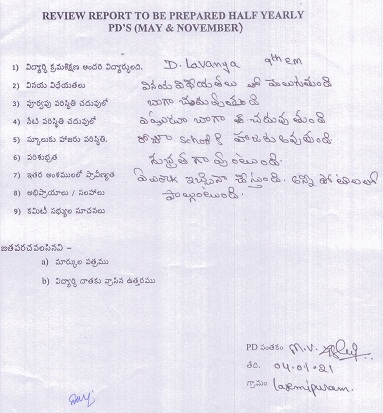 REVIEW REPORT TO BE PREPARED HALF YEARLY
PD'S (MAY & NOVEMBER)
1) విద్యార్థి క్రమశిక్షణ అందరి విద్యార్థులది. D. Lavanya 9th em
2) వినయ విధేయతలు వినయ విధేయతలు తో మెలుగుతుంది
3) పూర్వపు పరిస్థితి చదువులో బాగా చదువుతుంది
4) నేటి పరిస్థితి చదువులో బాగా చదువుతుంది
5) స్కూలుకు హాజరు పరిస్థితి. రోజూ school కి హాజరు అవుతుంది.
6) పరిశుభ్రత శుభ్రతగా వుంటుంది.
7) ఇతర అంశములలో ప్రావీణ్యత ఇచ్చినా చేస్తుంది. అన్ని
8) అభిప్రాయాలు / సలహాలు పాల్గుంటుంది.
9) కమిటీ సభ్యుల సూచనలు
జతపరచవలసినవి –
a) మార్కుల పత్రము
b) విద్యార్థి దాతకు వ్రాసిన ఉత్తరము
PD సంతకం M.V.
తేది. 04-01-21
గ్రామం Laxmipuram.